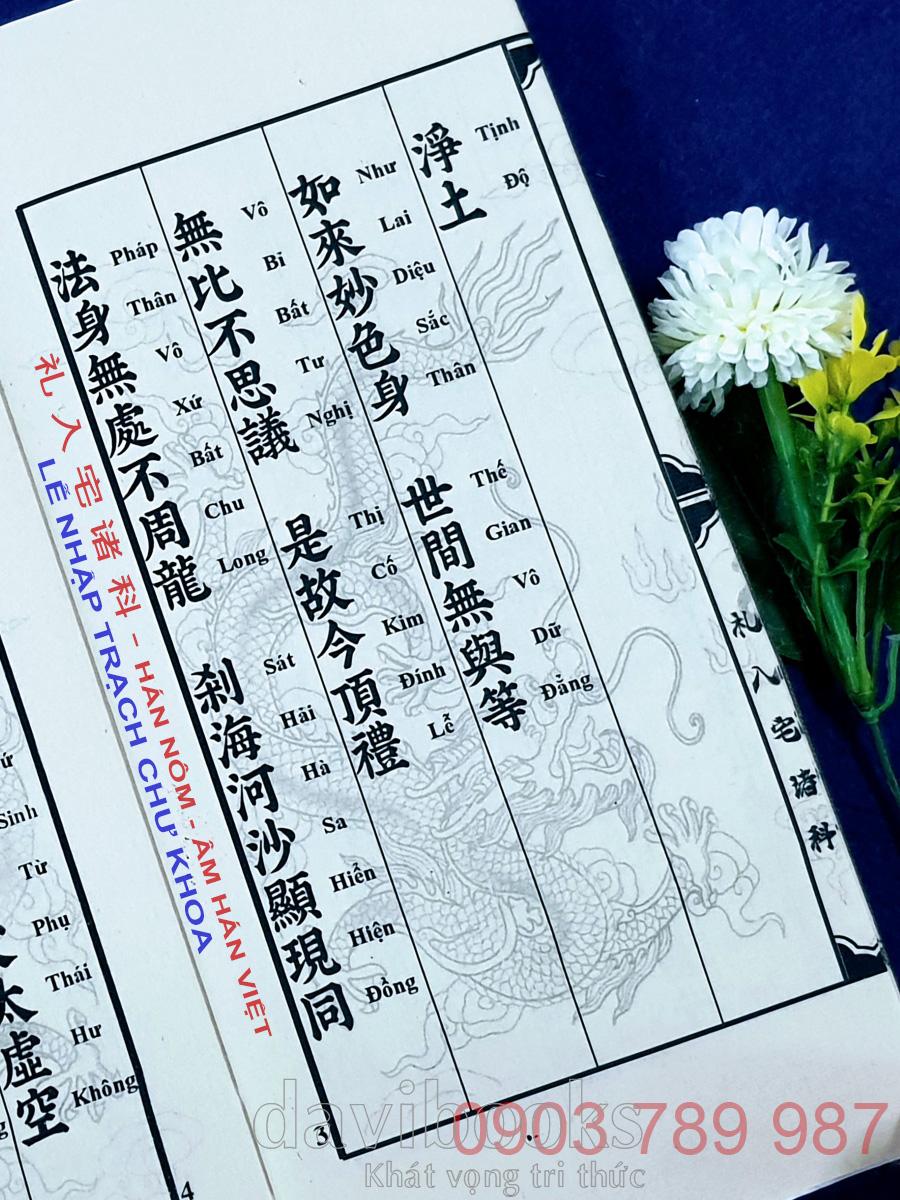 淨土
Tịnh Độ
如來妙色身 世間無與等
Như Lai Diệu Sắc Thân Thế Gian Vô Dữ Đẳng
無比不思議 是故今頂禮
Vô Bi Bất Tư Nghị Thị Cố Kim Đính Lễ
法身無處不周龍 剎海河沙顯現同
Pháp Thân Vô Xứ Bất Chu Long Sát Hải Hà Sa Hiển Hiện Đồng
札入宅诸科
3
礼入宅诸科 - HÁN NÔM - ÂM HÁN VIỆT
LỄ NHẬP TRẠCH CHƯ KHOA
太虛空
Sinh Từ Phụ Thái Hư Không
4
davibooks
0903 789 987
Khát vọng tri thức